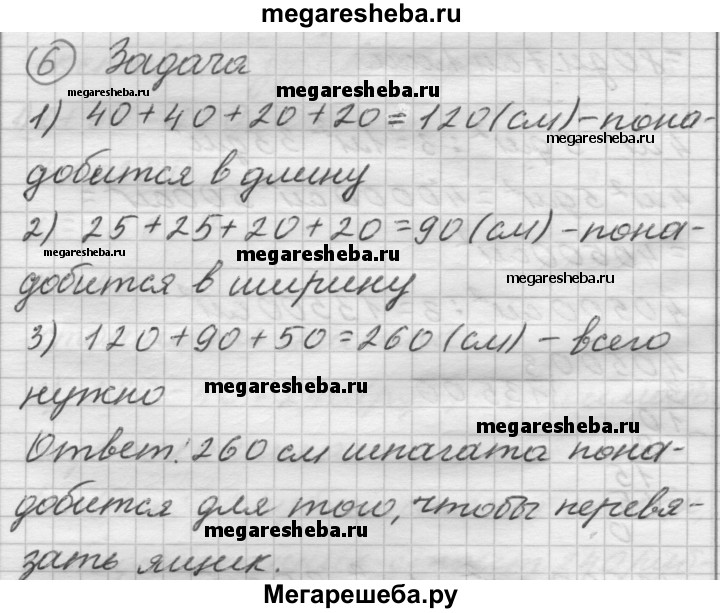 megaresheba.ru
6 Задача
megaresheba.ru megaresheba.ru
1) 40+40+20+20=120(см)-пона-
megaresheba.ru
добится в длину
2) 25+25+20+20=90(см)-пона-
megaresheba.ru megaresheba.ru megaresheba.ru
добится в ширину
3) 120+90+50=260(см)-всего
нужно
megaresheba.ru
megaresheba.ru
Ответ: 260 см шпагата пона-
добится для того, чтобы перевя-
megaresheba.ru
зать ящик.
Мегарешеба.ру